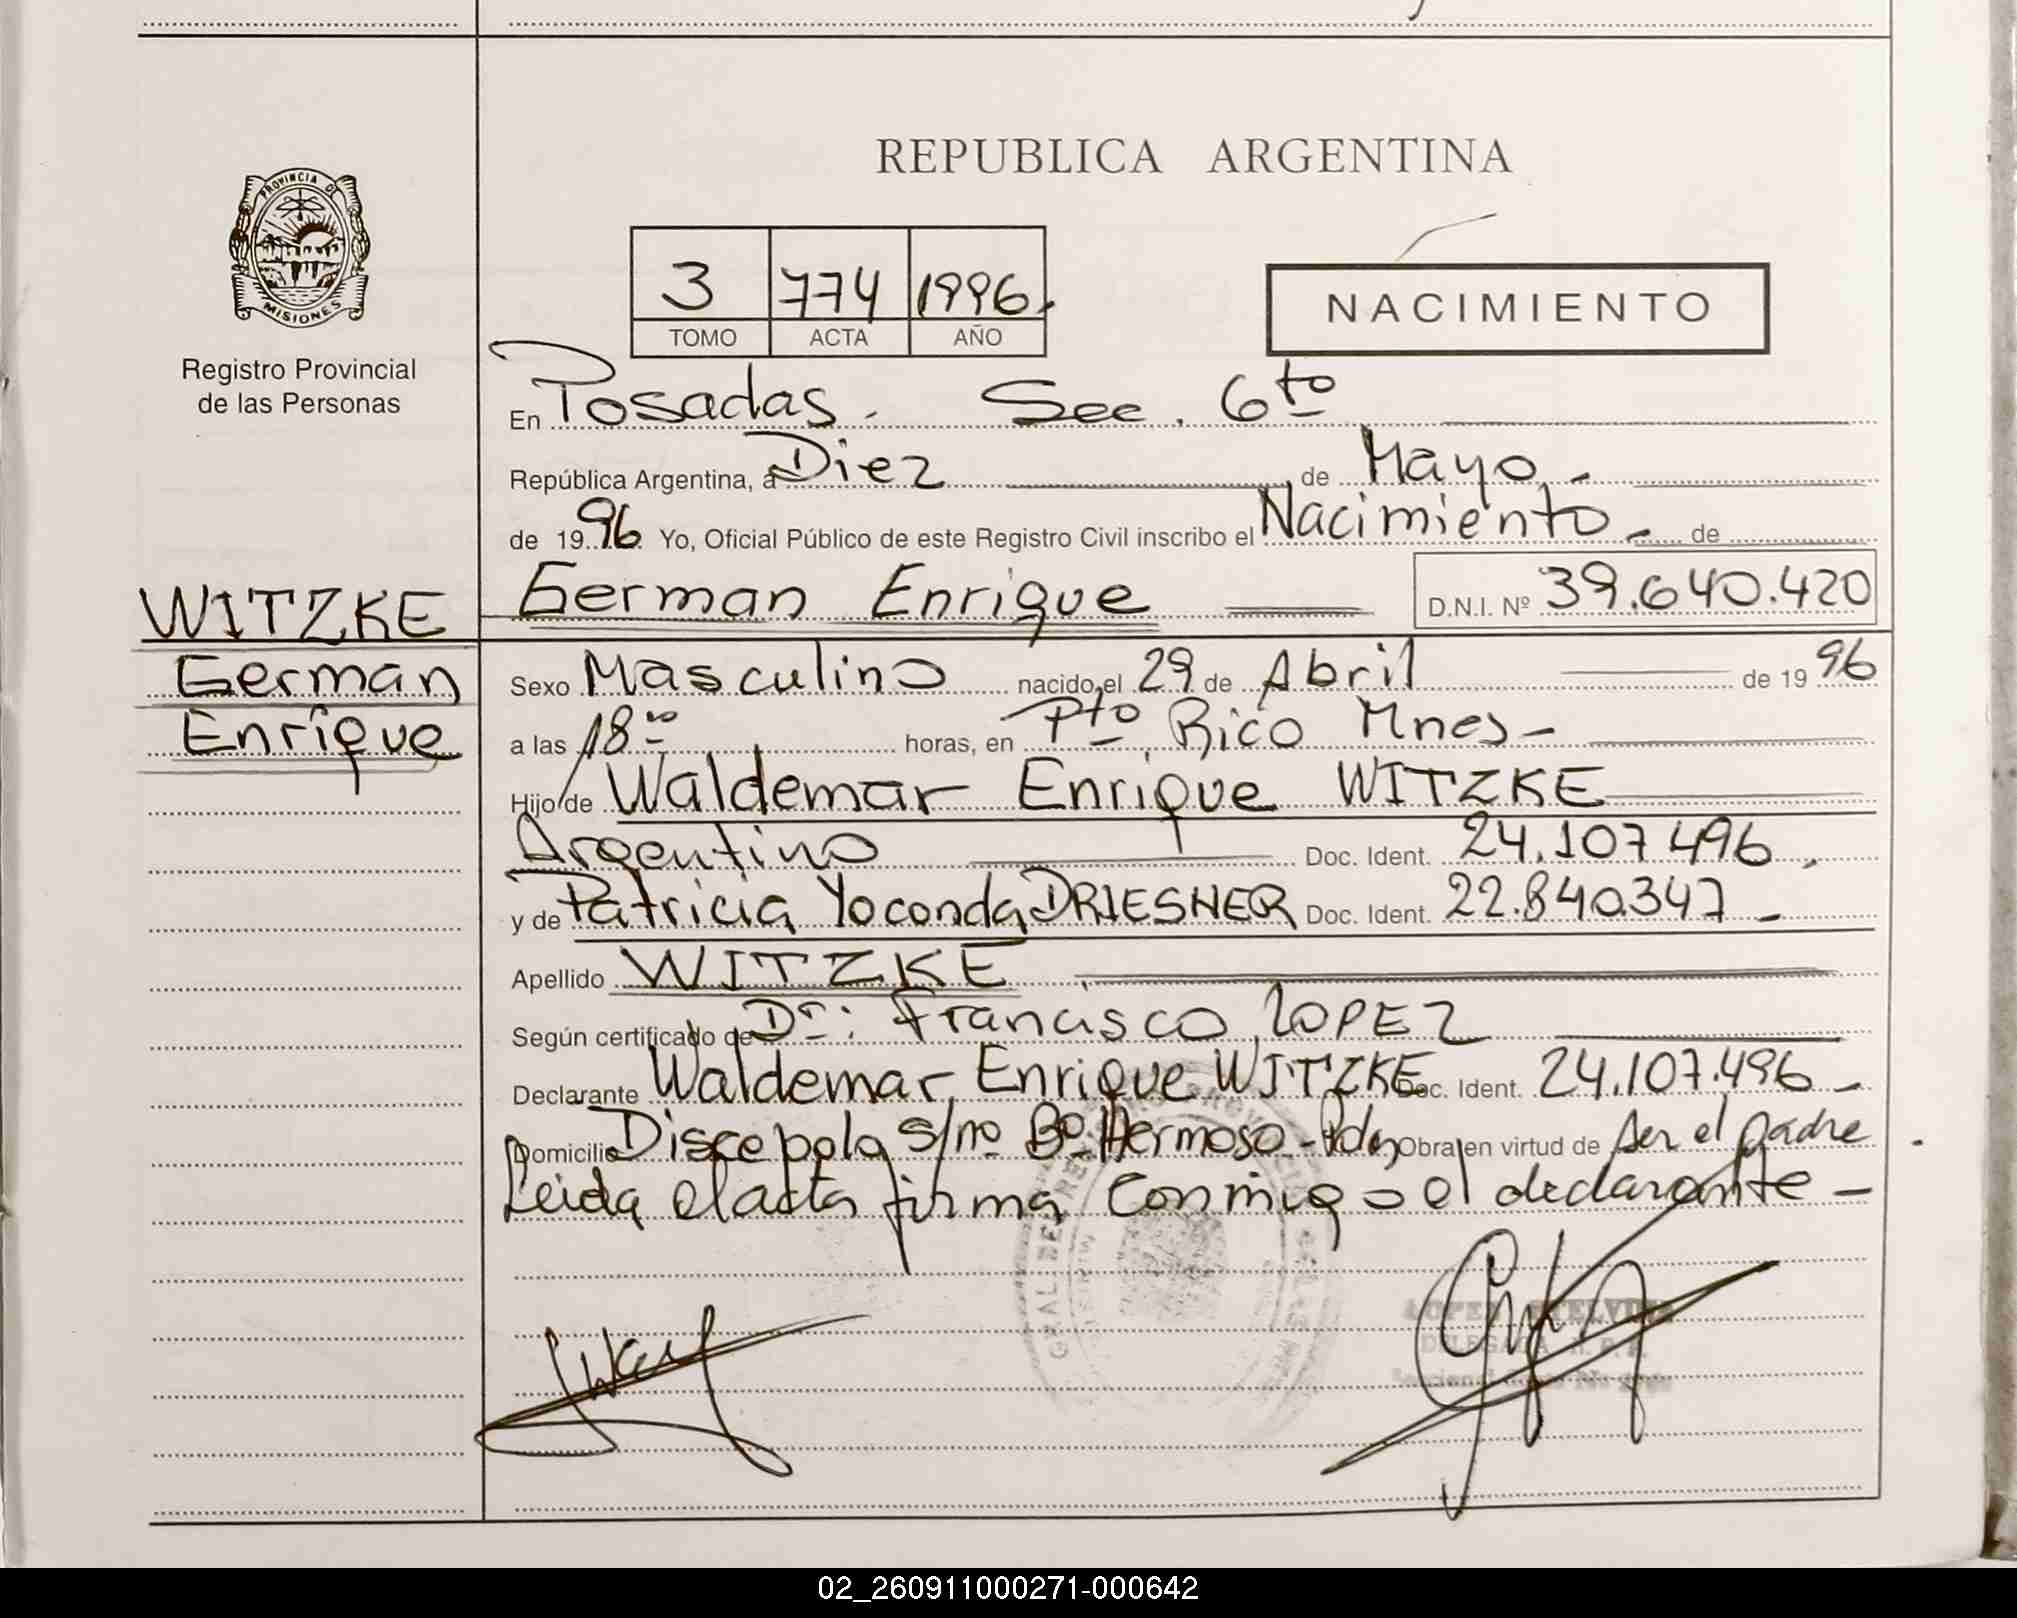 REPUBLICA ARGENTINA
PROVINCIA DE
MISIONES
Registro Provincial
de las Personas
3 774 1996.
TOMO ACTA AÑO
NACIMIENTO
En Posadas. Sec. 6to
República Argentina, a Diez de Mayo.-
de 1996 Yo, Oficial Público de este Registro Civil inscribo el Nacimiento - de
German Enrique D.N.I. Nº 39.640.420
WITZKE
German
Enrique
Sexo Masculino nacido el 29 de Abril de 1996
a las 18 horas, en Pto Rico Mnes-
Hijo de Waldemar Enrique WITZKE
Argentino Doc. Ident. 24.107.496.
y de Patricia Yoconda DRIESNER Doc. Ident. 22.840.347-
Apellido WITZKE
Según certificado de Dr: Francisco LOPEZ
Declarante Waldemar Enrique WITZKE Doc. Ident. 24.107.496-
Domicilio Discepolo s/nº Bº Hermoso-Pdas Obra en virtud de ser el padre.
Leida el acta firma conmigo el declarante-
LOPEZ ETELVINA
DELEGADA R. P. P.
02_260911000271-000642